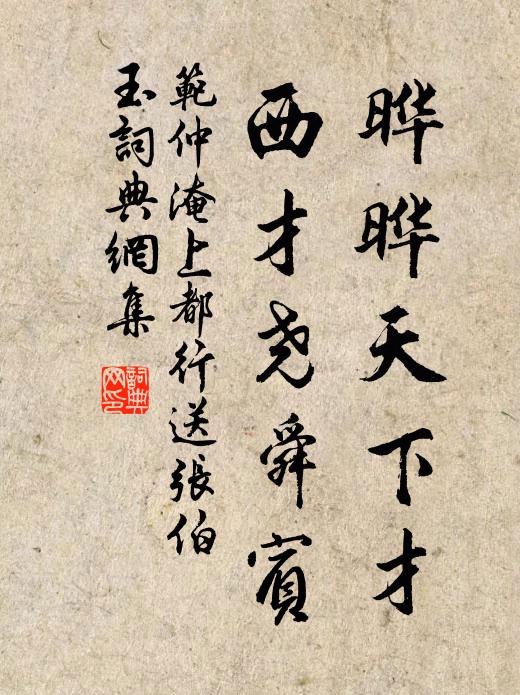 晔晔天下才
西才尧舜賓
範仲淹上都行送張伯
玉詞典網集
詞典
网印